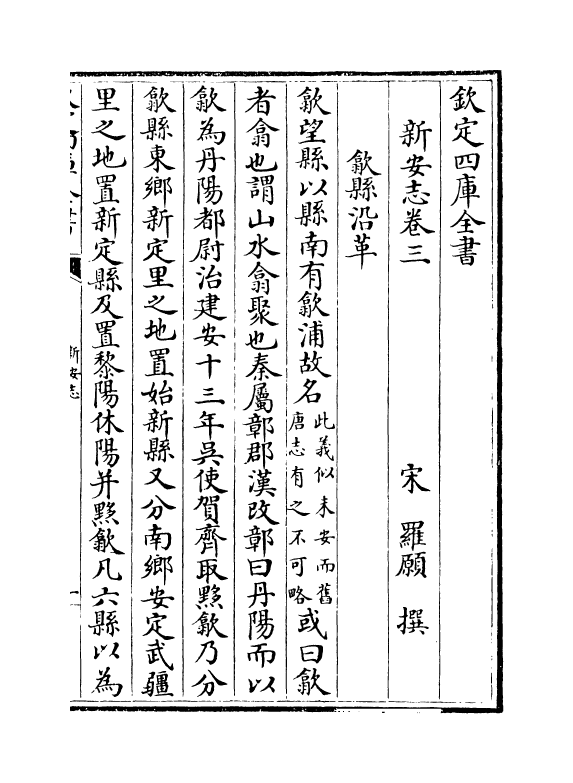 欽定四庫全書
新安志卷三
宋 羅願 撰
歙縣沿革
歙望縣以縣南有歙浦故名此義似未安而舊唐志有之不可略或曰歙
者翕也謂山水翕聚也秦屬鄣郡漢改鄣曰丹陽而以
歙為丹陽都尉治建安十三年吳使賀齊取黟歙乃分
歙縣東鄉新定里之地置始新縣又分南鄉安定武疆
里之地置新定縣及置黎陽休陽并黟歙凡六縣以為
新安志
一